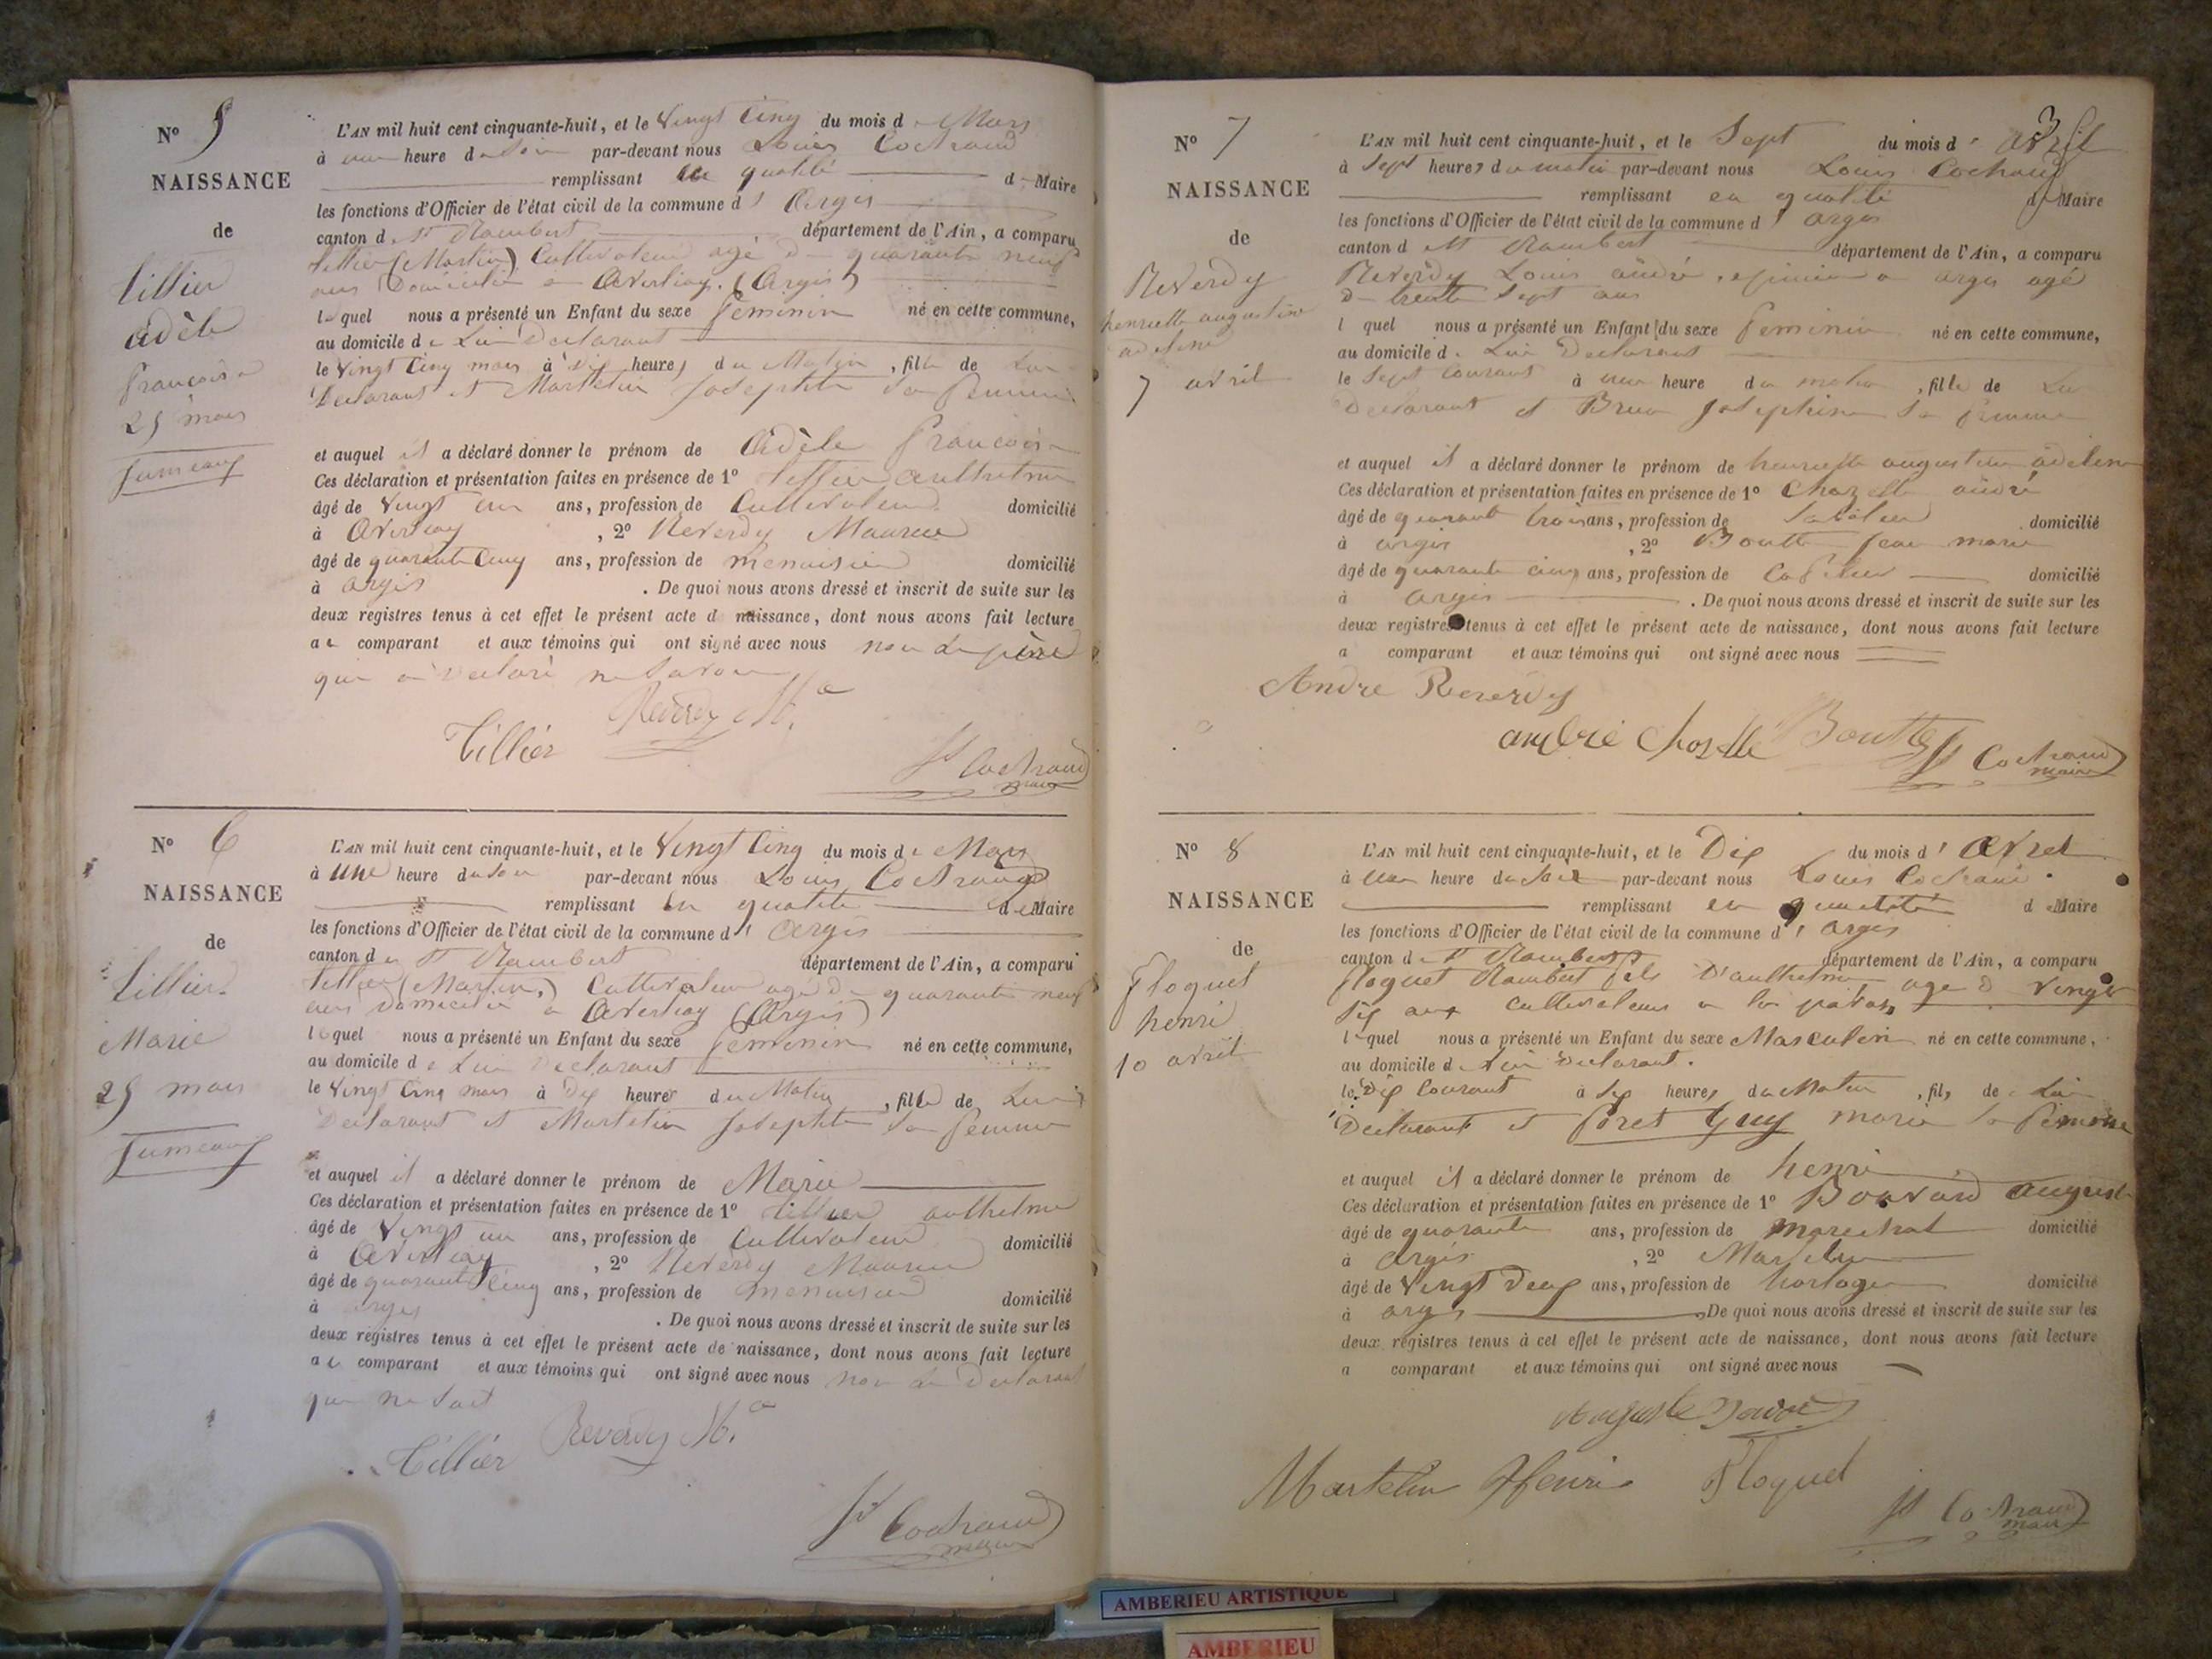 N° 5
NAISSANCE
de
Tillier
adèle
francoise
25 mars
Jumeaux
L'AN mil huit cent cinquante-huit, et le Vingt Cinq du mois de Mars
à une heure du soir par-devant nous Louis Cochaud
remplissant en qualité de Maire
les fonctions d'Officier de l'état civil de la commune d' Argis
canton de St Rambert département de l'Ain, a comparu
Tillier (Martin) Cultivateur agé de quarante neuf
ans Domicilié à Averliay (Argis)
lequel nous a présenté un Enfant du sexe feminin né en cette commune,
au domicile de Lui Déclarant
le Vingt Cinq mars à dix heures du Matin, fille de Lui
Déclarant et Martelin Josephte sa femme
et auquel il a déclaré donner le prénom de Adèle francoise
Ces déclaration et présentation faites en présence de 1° Tillier anthelme
âgé de Vingt un ans, profession de Cultivateur domicilié
à Averliay, 2° Reverdy Maurice
âgé de quarante Cinq ans, profession de menuisier domicilié
à argis. De quoi nous avons dressé et inscrit de suite sur les
deux registres tenus à cet effet le présent acte de naissance, dont nous avons fait lecture
au comparant et aux témoins qui ont signé avec nous non le père
qui a déclaré ne savoir
Reverdy Ma
Tillier
Ls Cochaud
maire
N° 6
NAISSANCE
de
Tillier
Marie
25 mars
Jumeaux
L'AN mil huit cent cinquante-huit, et le Vingt Cinq du mois de Mars
à une heure du soir par-devant nous Louis Cochaud
remplissant en qualité de Maire
les fonctions d'Officier de l'état civil de la commune d' Argis
canton de St Rambert département de l'Ain, a comparu
Tillier (Martin) Cultivateur agé de quarante neuf
ans domicilié à Averliay (Argis)
lequel nous a présenté un Enfant du sexe feminin né en cette commune,
au domicile de Lui Déclarant
le Vingt Cinq mars à Dix heures du Matin, fille de Lui
Déclarant et Martelin Josephte sa femme
et auquel il a déclaré donner le prénom de Marie
Ces déclaration et présentation faites en présence de 1° Tillier anthelme
âgé de Vingt un ans, profession de Cultivateur domicilié
à Averliay, 2° Reverdy Maurice
âgé de quarante Cinq ans, profession de menuisier domicilié
à argis. De quoi nous avons dressé et inscrit de suite sur les
deux registres tenus à cet effet le présent acte de naissance, dont nous avons fait lecture
au comparant et aux témoins qui ont signé avec nous non le Déclarant
qui ne sait
Reverdy Ma
Tillier
Ls Cochaud
maire
3
N° 7
NAISSANCE
de
Reverdy
henriette augustine
adeline
7 avril
L'AN mil huit cent cinquante-huit, et le Sept du mois d' avril
à Sept heures du matin par-devant nous Louis Cochaud
remplissant en qualité de Maire
les fonctions d'Officier de l'état civil de la commune d' argis
canton de St Rambert département de l'Ain, a comparu
Reverdy Louis andré, à argis agé
de trente sept ans
lequel nous a présenté un Enfant du sexe feminin né en cette commune,
au domicile de Lui Déclarant
le Sept courant à une heure du matin, fille de Lui
Déclarant et Brun Josephine sa femme
et auquel il a déclaré donner le prénom de henriette augustine adeline
Ces déclaration et présentation faites en présence de 1° Chazelle andré
âgé de quarante trois ans, profession de domicilié
à argis, 2° Boutte jean marie
âgé de quarante cinq ans, profession de domicilié
à argis. De quoi nous avons dressé et inscrit de suite sur les
deux registres tenus à cet effet le présent acte de naissance, dont nous avons fait lecture
a comparant et aux témoins qui ont signé avec nous
Andre Reverdy
andré Boutte
Ls Cochaud
maire
N° 8
NAISSANCE
de
floquet
henri
10 avril
L'AN mil huit cent cinquante-huit, et le Dix du mois d' Avril
à une heure du soir par-devant nous Louis Cochaud
remplissant en qualité de Maire
les fonctions d'Officier de l'état civil de la commune d' argis
canton de St Rambert département de l'Ain, a comparu
floquet Rambert fils D'anthelme agé de Vingt
six ans cultivateur à
lequel nous a présenté un Enfant du sexe Masculin né en cette commune,
au domicile de Lui Déclarant.
le Dix Courant à six heures du Matin, fils de Lui
Déclarant et marie sa femme
et auquel il a déclaré donner le prénom de henri
Ces déclaration et présentation faites en présence de 1° Bouvard august
âgé de quarante ans, profession de marechal domicilié
à Argis, 2° Martelin
âgé de Vingt deux ans, profession de horloger domicilié
à argis. De quoi nous avons dressé et inscrit de suite sur les
deux registres tenus à cet effet le présent acte de naissance, dont nous avons fait lecture
a comparant et aux témoins qui ont signé avec nous
Auguste
Martelin Henri Floquet
Ls Cochaud
maire
AMBERIEU ARTISTIQUE
AMBERIEU